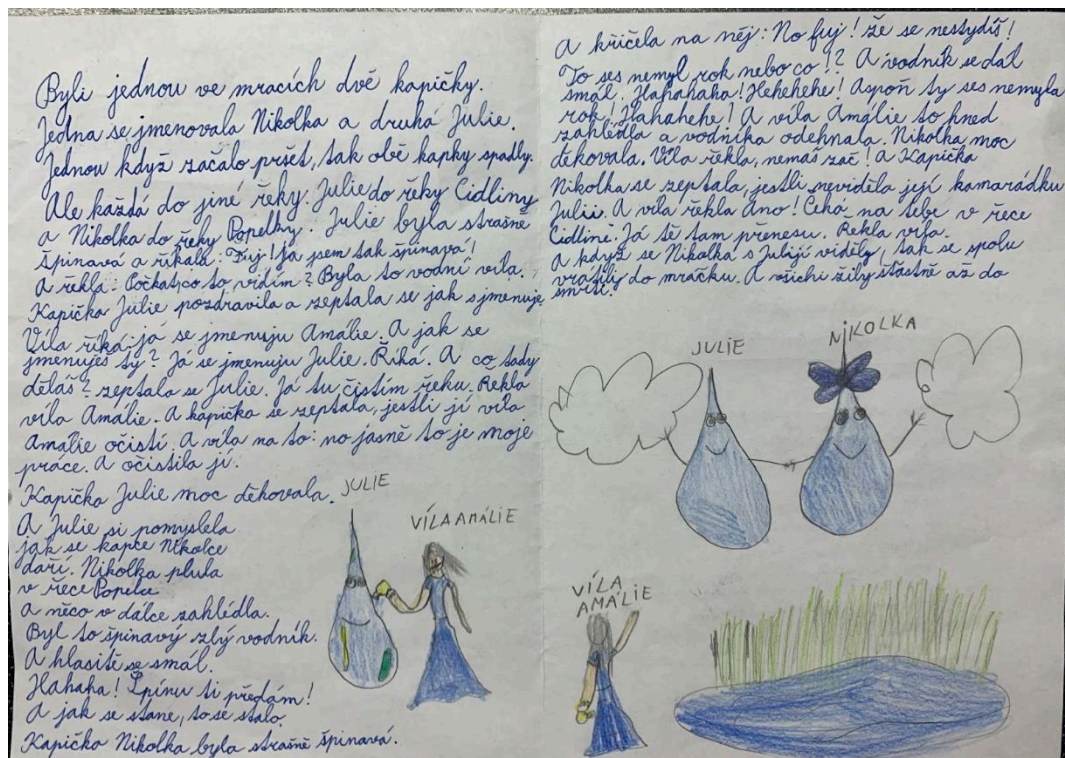 Byli jednou ve mracích dvě kapičky.
Jedna se jmenovala Nikolka a druhá Julie.
Jednou když začalo pršet, tak obě kapky spadly.
Ale každá do jiné řeky. Julie do řeky Cidliny
a Nikolka do řeky Popelky. Julie byla strašně
špinavá a říkala: Fuj! Já jsem tak špinavá!
A řekla: Počkat, co to vidím? Byla to vodní víla.
Kapička Julie pozdravila a zeptala se jak sjmenuje
Víla říká: já se jmenuju Amálie. A jak se
jmenuješ ty? Já se jmenuju Julie. Říká. A co tady
děláš? zeptala se Julie. Já tu čistím řeku. Řekla
víla Amálie. A kapička se zeptala, jestli jí víla
Amálie očistí. A víla na to: no jasně to je moje
práce. A očistila jí.
Kapička Julie moc děkovala.
A Julie si pomyslela
jak se kapce Nikolce
daří. Nikolka plula
v řece Popelce
a něco v dálce zahlédla.
Byl to špinavý zlý vodník.
A hlasitě se smál.
Hahaha! Špínu ti předám!
A jak se stane, to se stalo.
Kapička Nikolka byla strašně špinavá.
JULIE
VÍLA AMÁLIE
A křičela na něj: No fuj! že se nestydíš!
To ses nemyl rok nebo co!? A vodník se dál
smál. Hahahaha! Hehehehe! Aspoň ty ses nemyla
rok! Hahahehe! A víla Amálie to hned
zahlédla a vodníka odehnala. Nikolka moc
děkovala. Víla řekla, nemáš zač! a Kapička
Nikolka se zeptala, jestli neviděla její kamarádku
Julii. A víla řekla Ano! Čeká na tebe v řece
Cidlině. Já tě tam přenesu. Řekla víla.
A když se Nikolka s Julijí viděly, tak se spolu
vrátily do mráčku. A všichi žily šťastně až do
smrti!
JULIE
NIKOLKA
VÍLA
AMÁLIE